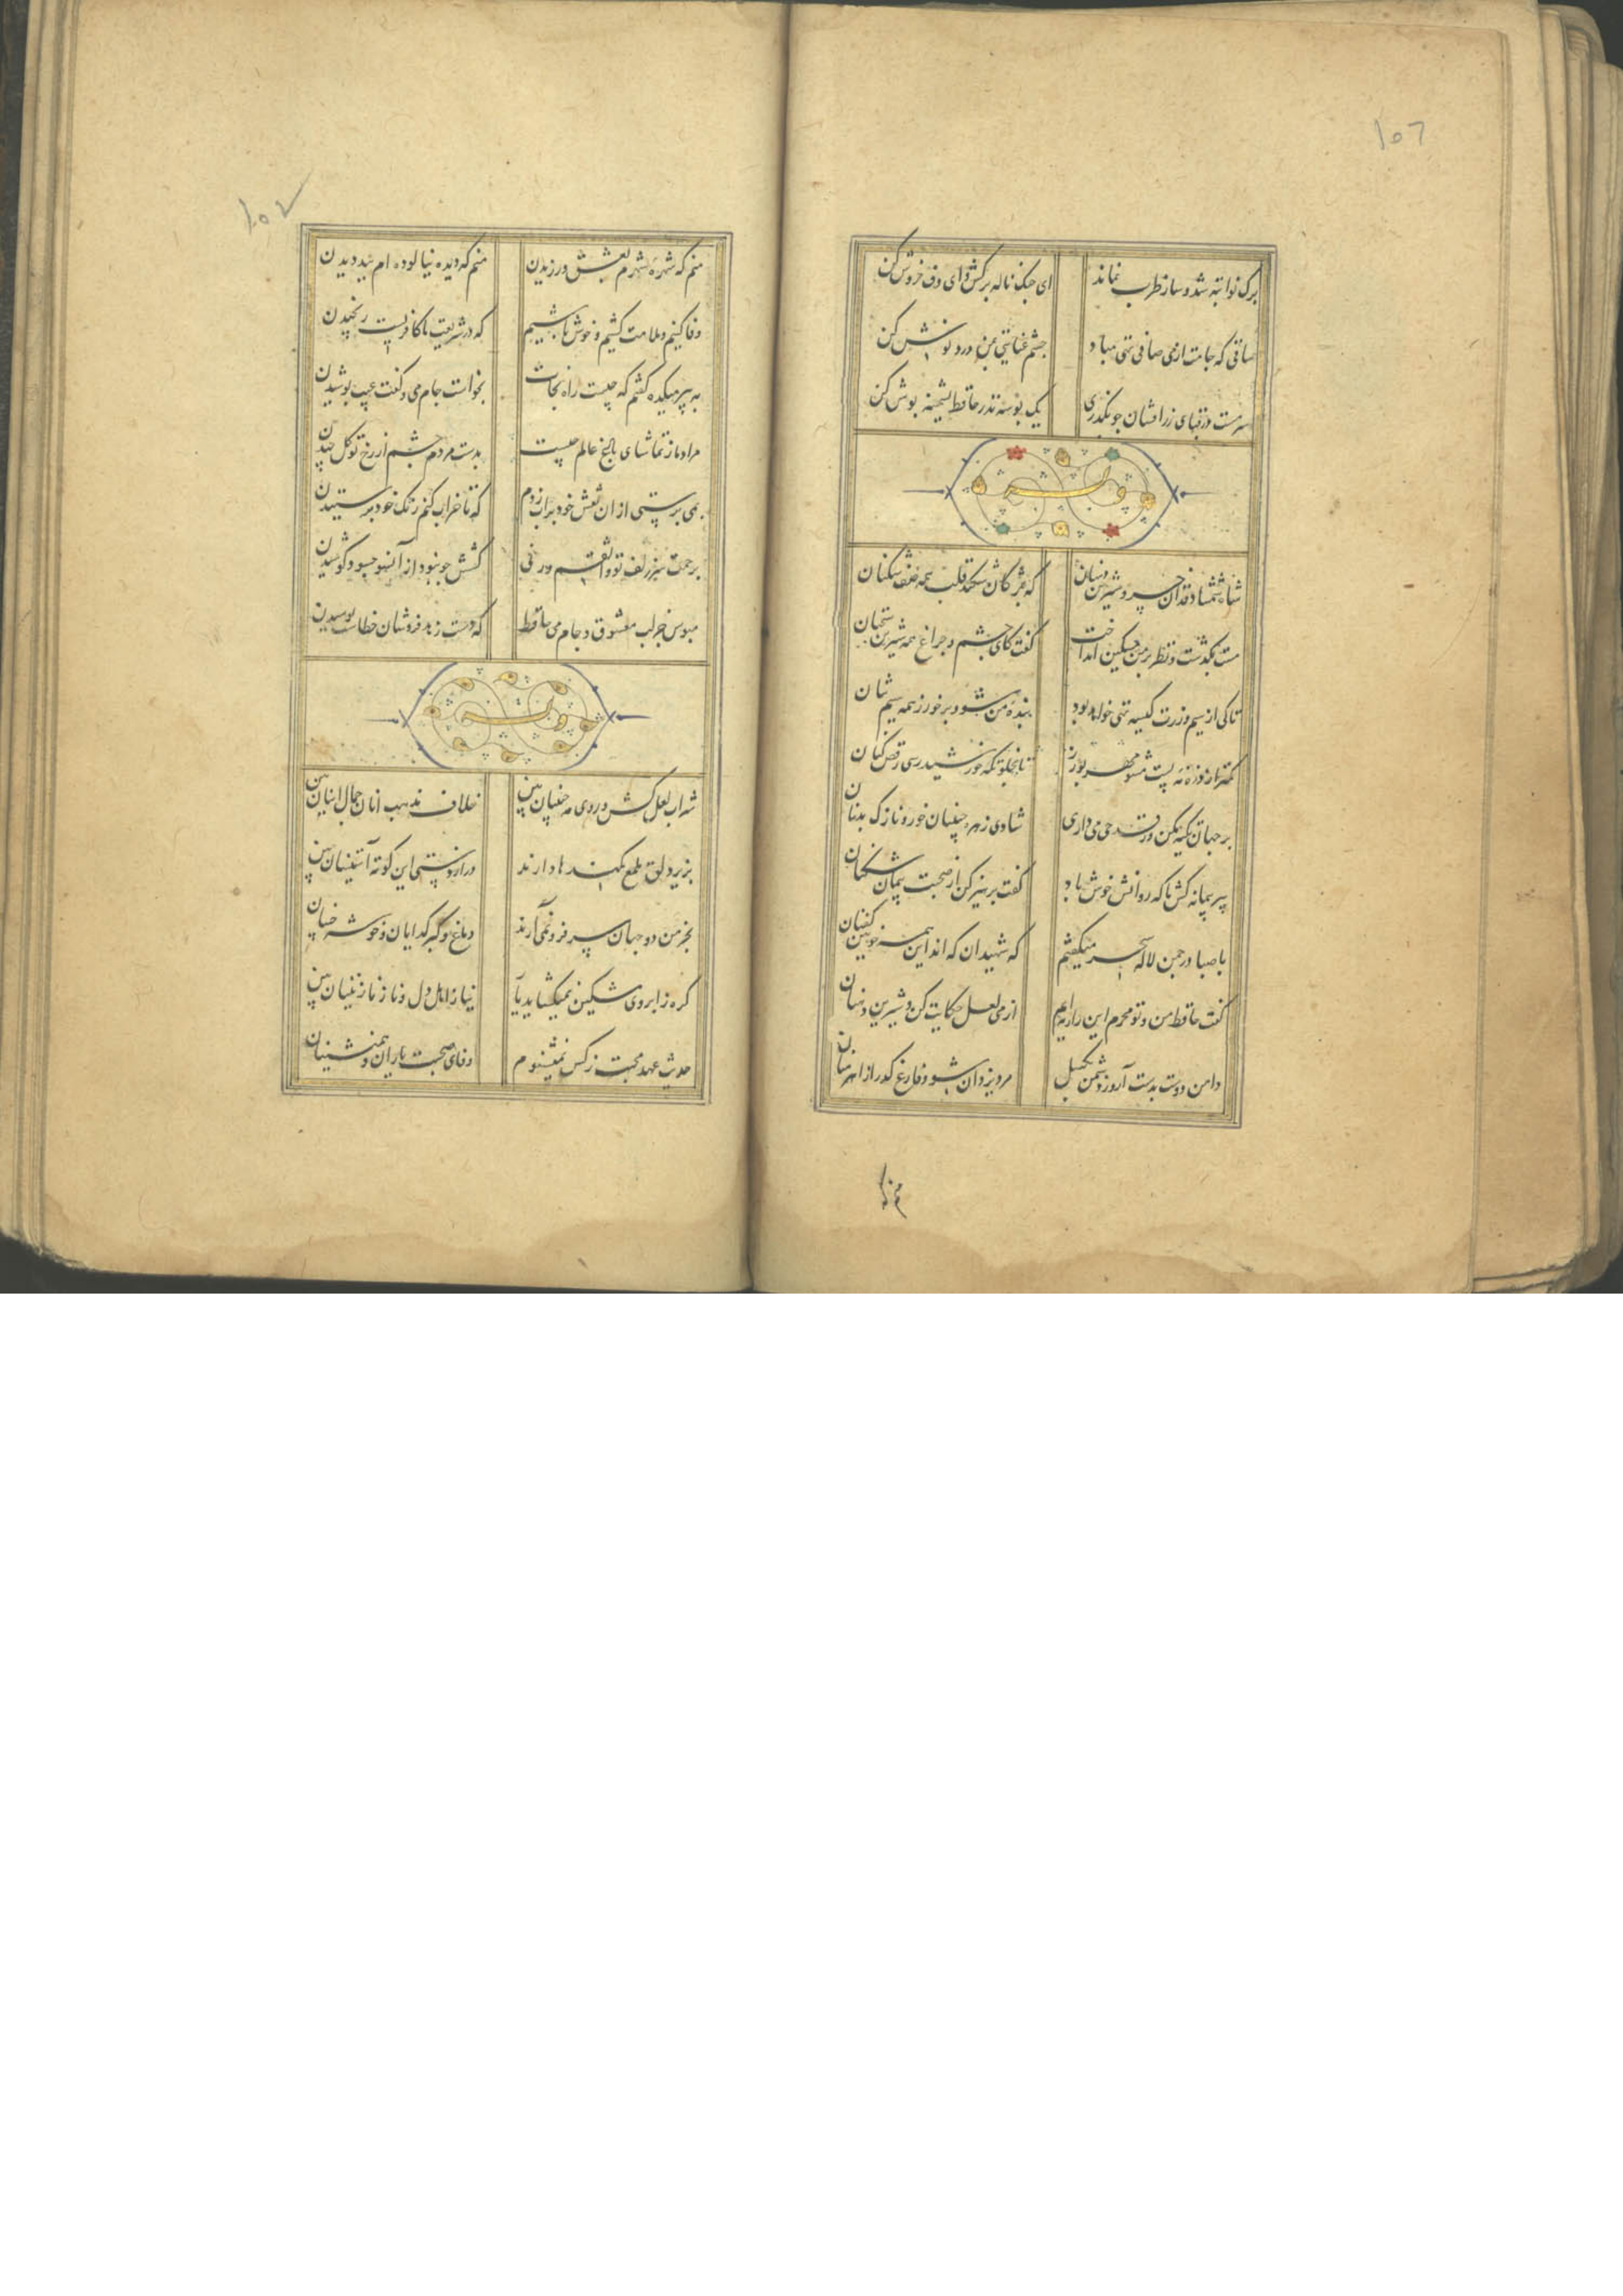 ۱۰۶
برک نوا تبه شد و ساز طرب نماند ای چنک ناله برکش و ای دف خروش کن
ساقی که جامت از می صافی تهی مباد چشم عنایتی بمن درد نوش کن
سرمست در قبای زرافشان چو بگذری یک بوسه نذر حافظ پشمینه پوش کن
وله
شاه شمشاد قدان خسرو شیرین دهنان که بمژکان شکند قلب همه صف شکنان
مست بگذشت و نظر بر من مسکین انداخت گفت کای چشم و چراغ همه شیرین سخنان
تا کی از سیم و زرت کیسه تهی خواهد بود بنده من شو و برخور ز همه سیم تنان
کمتر از ذره نه پست مشو مهر بورز تا بخلوتگه خورشید رسی رقص کنان
بر جهان تکیه مکن ور قدحی می داری شادی زهره جبینان خور و نازک بدنان
پیر پیمانه کش ما که روانش خوش باد گفت پرهیز کن از صحبت پیمان شکنان
با صبا در چمن لاله سحر میگفتم که شهیدان که اند این همه خونین کفنان
گفت حافظ من و تو محرم این راز نه ایم از می لعل حکایت کن و شیرین دهنان
دامن دوست بدست آر و ز دشمن بگسل مرد یزدان شو و فارغ گذر از اهرمنان
منم که
۱۰۷
منم که شهره شهرم بعشق ورزیدن منم که دیده نیالوده ام ببد دیدن
وفا کنیم و ملامت کشیم و خوش باشیم که در شریعت ما کافریست رنجیدن
به پیر میکده گفتم که چیست راه نجات بخواست جام می و گفت عیب پوشیدن
مراد ما ز تماشای باغ عالم چیست بدست مردم چشم از رخ تو گل چیدن
بمی پرستی از ان نقش خود بر آب زدم که تا خراب کنم نقش خود پرستیدن
برحمت سر زلف تو واثقم ورنی کشش چو نبود از آنسو چسود کوشیدن
مبوس جز لب معشوق و جام می حافظ که دست زهد فروشان خطاست بوسیدن
وله
شراب لعل کش و روی مه جبینان بین خلاف مذهب آنان جمال اینان بین
بزیر دلق ملمع کمندها دارند دراز دستی این کوته آستینان بین
بخرمن دو جهان سر فرو نمی آرند دماغ و کبر گدایان و خوشه چینان بین
گره ز ابروی مشکین نمیگشاید یار نیاز اهل دل و ناز نازنینان بین
حدیث عهد محبت ز کس نمیشنوم وفای صحبت یاران و همنشینان بین